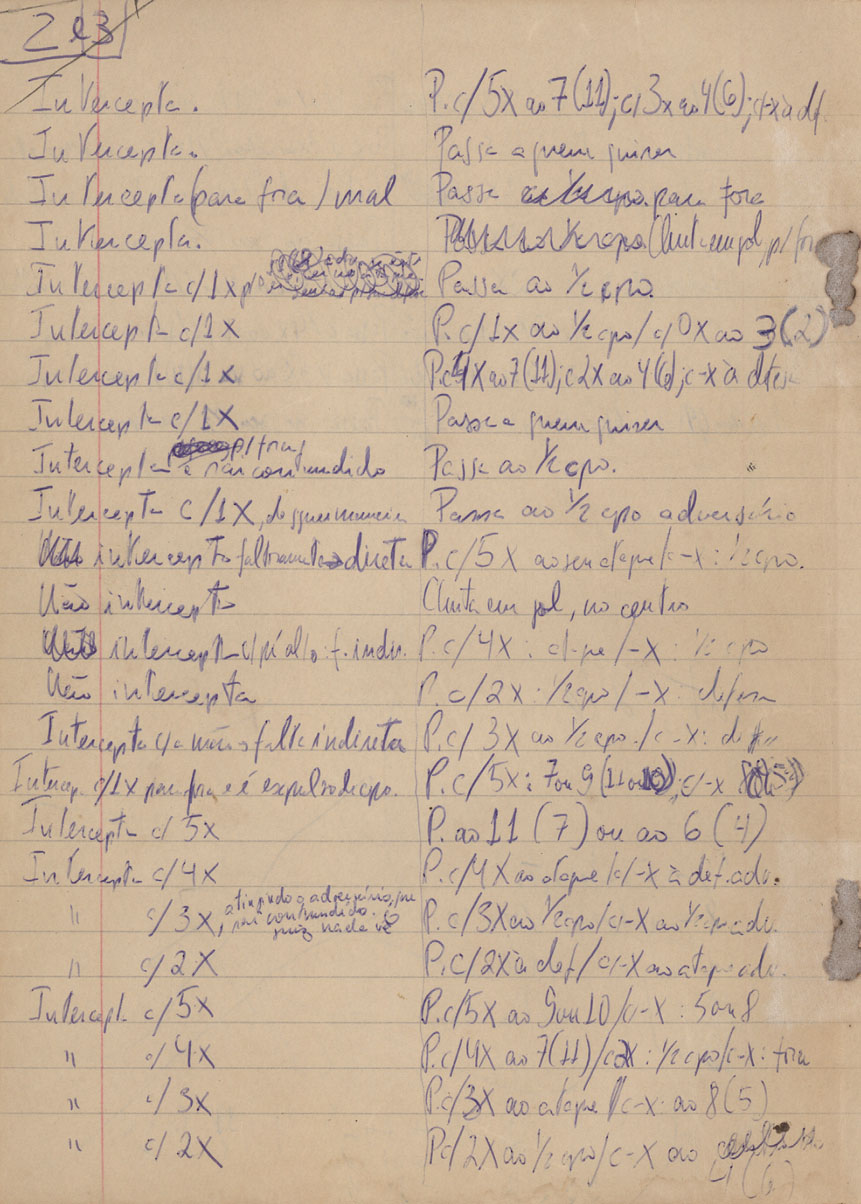 2 e 3
Intercepta. P. c/5X ao 7 (11); c/3X ao 4 (6); c/-X à def.
Intercepta. Passa a quem quiser
Intercepta (para fora) mal Passe para fora
Intercepta. Chuta em gol, p/ fora
Intercepta c/1X p/ Passa ao 1/2 cpo.
Intercepta c/1X P. c/1X ao 1/2 cpo/c/0X ao 3 (2)
Intercepta c/1X P. c/4X ao 7 (11); c/2X ao 4 (6); c-X à defesa
Intercepta c/1X Passe a quem quiser
Intercepta p/fora, e sai contundido Passa ao 1/2 cpo.
Intercepta c/1X, Passa ao 1/2 cpo adversário
intercepta faltosamente → direta P. c/5X ao seu ataque/c-X: 1/2 cpo.
Não intercepta Chuta em gol, no centro
intercepta c/pé alto: f. indir. P. c/4X: ataque/-X: 1/2 cpo
Não intercepta P. c/2X: 1/2 cpo/-X: defesa
Intercepta c/a mão: falta indireta P. c/3X ao 1/2 cpo./c-X: def
Intercep. c/1X para fora e é expulso de cpo. P. c/5X: 7 ou 9 (11 ou 10); c/-X 8
Intercepta c/5X P. ao 11 (7) ou ao 6 (4)
Intercepta c/4X P. c/4X ao ataque/c/-X à def. adv.
" c/3X, atingindo o adversário, que sai contundido. O juiz nada vê P. c/3X ao 1/2 cpo/c/-X ao 1/2 cpo adv.
" c/2X P. c/2X à def/c/-X ao ataque adv.
Intercepta c/5X P. c/5X ao 9 ou 10/c/-X: 5 ou 8
" c/4X P. c/4X ao 7 (11)/c/2X: 1/2 cpo/c-X: fora
" c/3X P. c/3X ao ataque/c-X: ao 8 (5)
" c/2X P. c/2X ao 1/2 cpo/c-X ao
4 (6)